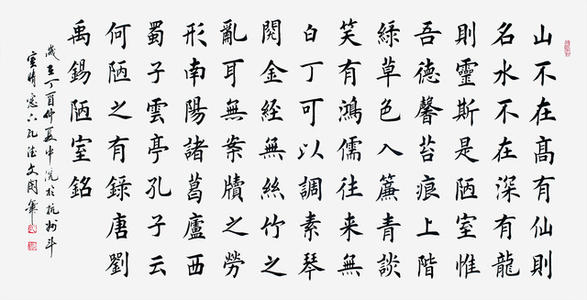 山不在高有仙則
名水不在深有龍
則靈斯是陋室惟
吾德馨苔痕上階
綠草色入簾青談
笑有鴻儒往來無
白丁可以調素琴
閱金經無絲竹之
亂耳無案牘之勞
形南陽諸葛廬西
蜀子雲亭孔子云
何陋之有錄唐劉
禹錫陋室銘
歲在丁酉仲夏中浣於杭州斗
室晴窓